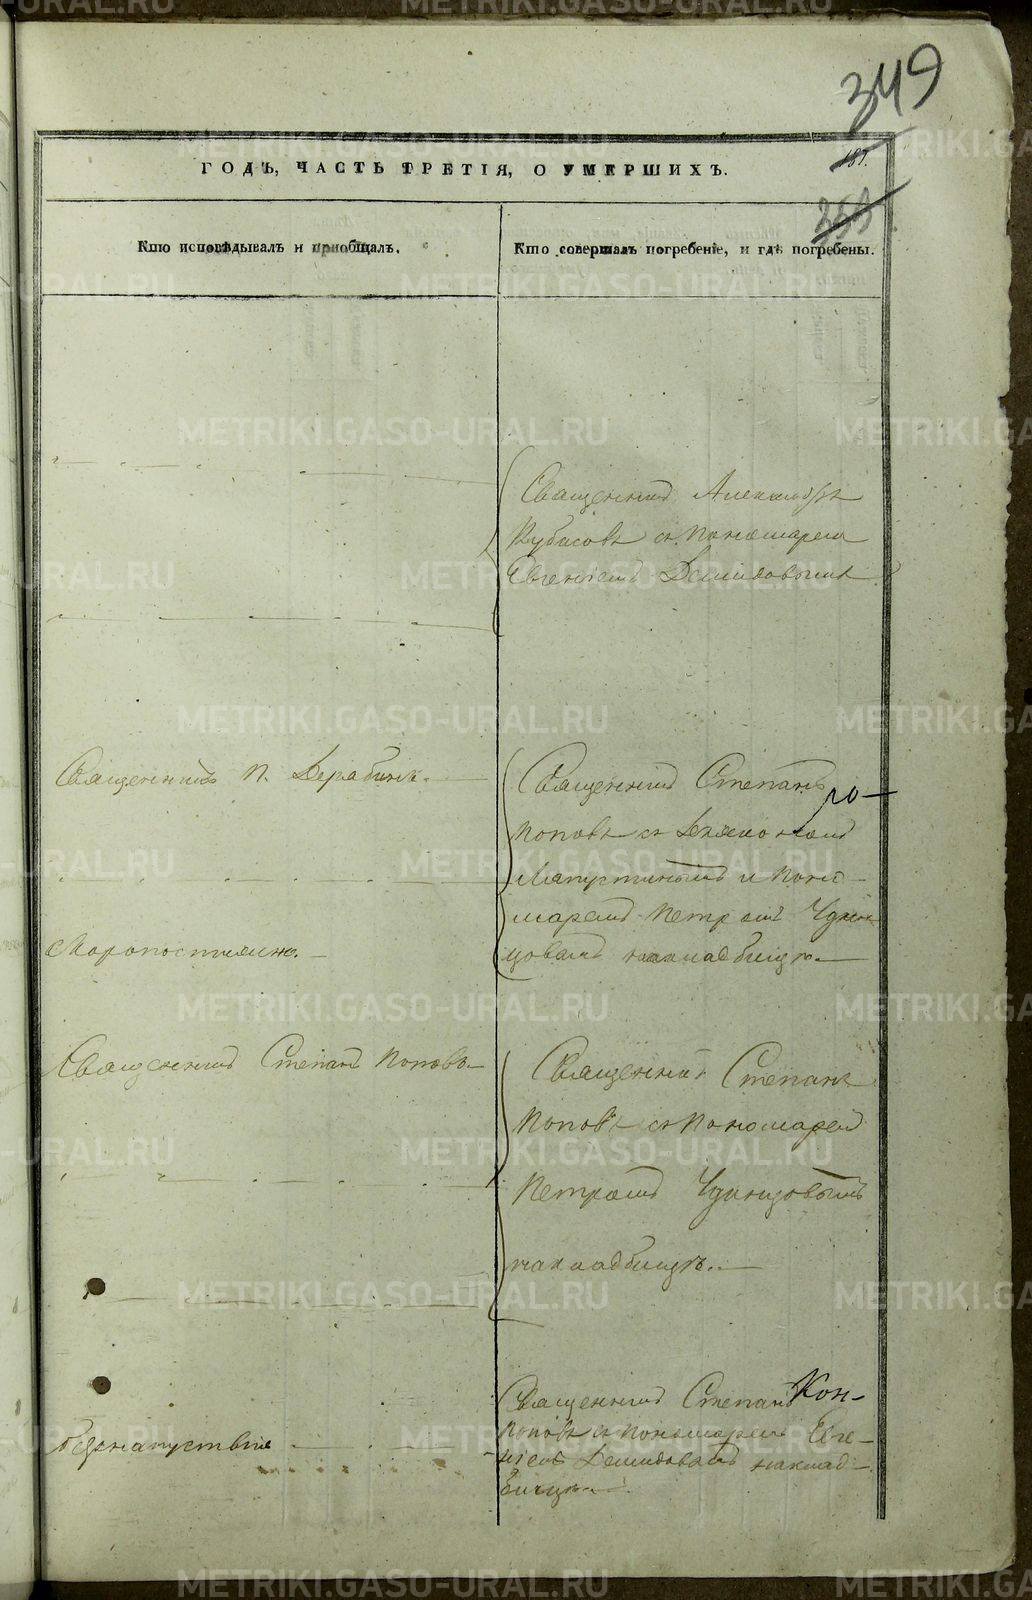 349
187.
353
ГОДЪ, ЧАСТЬ ТРЕТІЯ, О УМЕРШИХЪ.
Кто исповѣдывалъ и пріобщалъ.
Кто совершалъ погребеніе, и гдѣ погребены.
Священникъ Александръ
Кубасовъ съ Пономаремъ
Евгеніемъ Демидовымъ
Священникъ П. Дерябинъ.
Священникъ Степанъ
Поповъ съ Дьякономъ
и Поно-
маремъ Петромъ
цовымъ накладбищѣ.
Скоропостижно.
Священникъ Степанъ Поповъ
Священникъ Степанъ
Поповъ съ Пономаремъ
Петромъ
накладбищѣ.
безнапутствія
Священникъ Степанъ Кон-
Поповъ съ пономаремъ Евге-
ніемъ Демидовымъ наклад-
бищѣ
METRIKI.GASO-URAL.RU